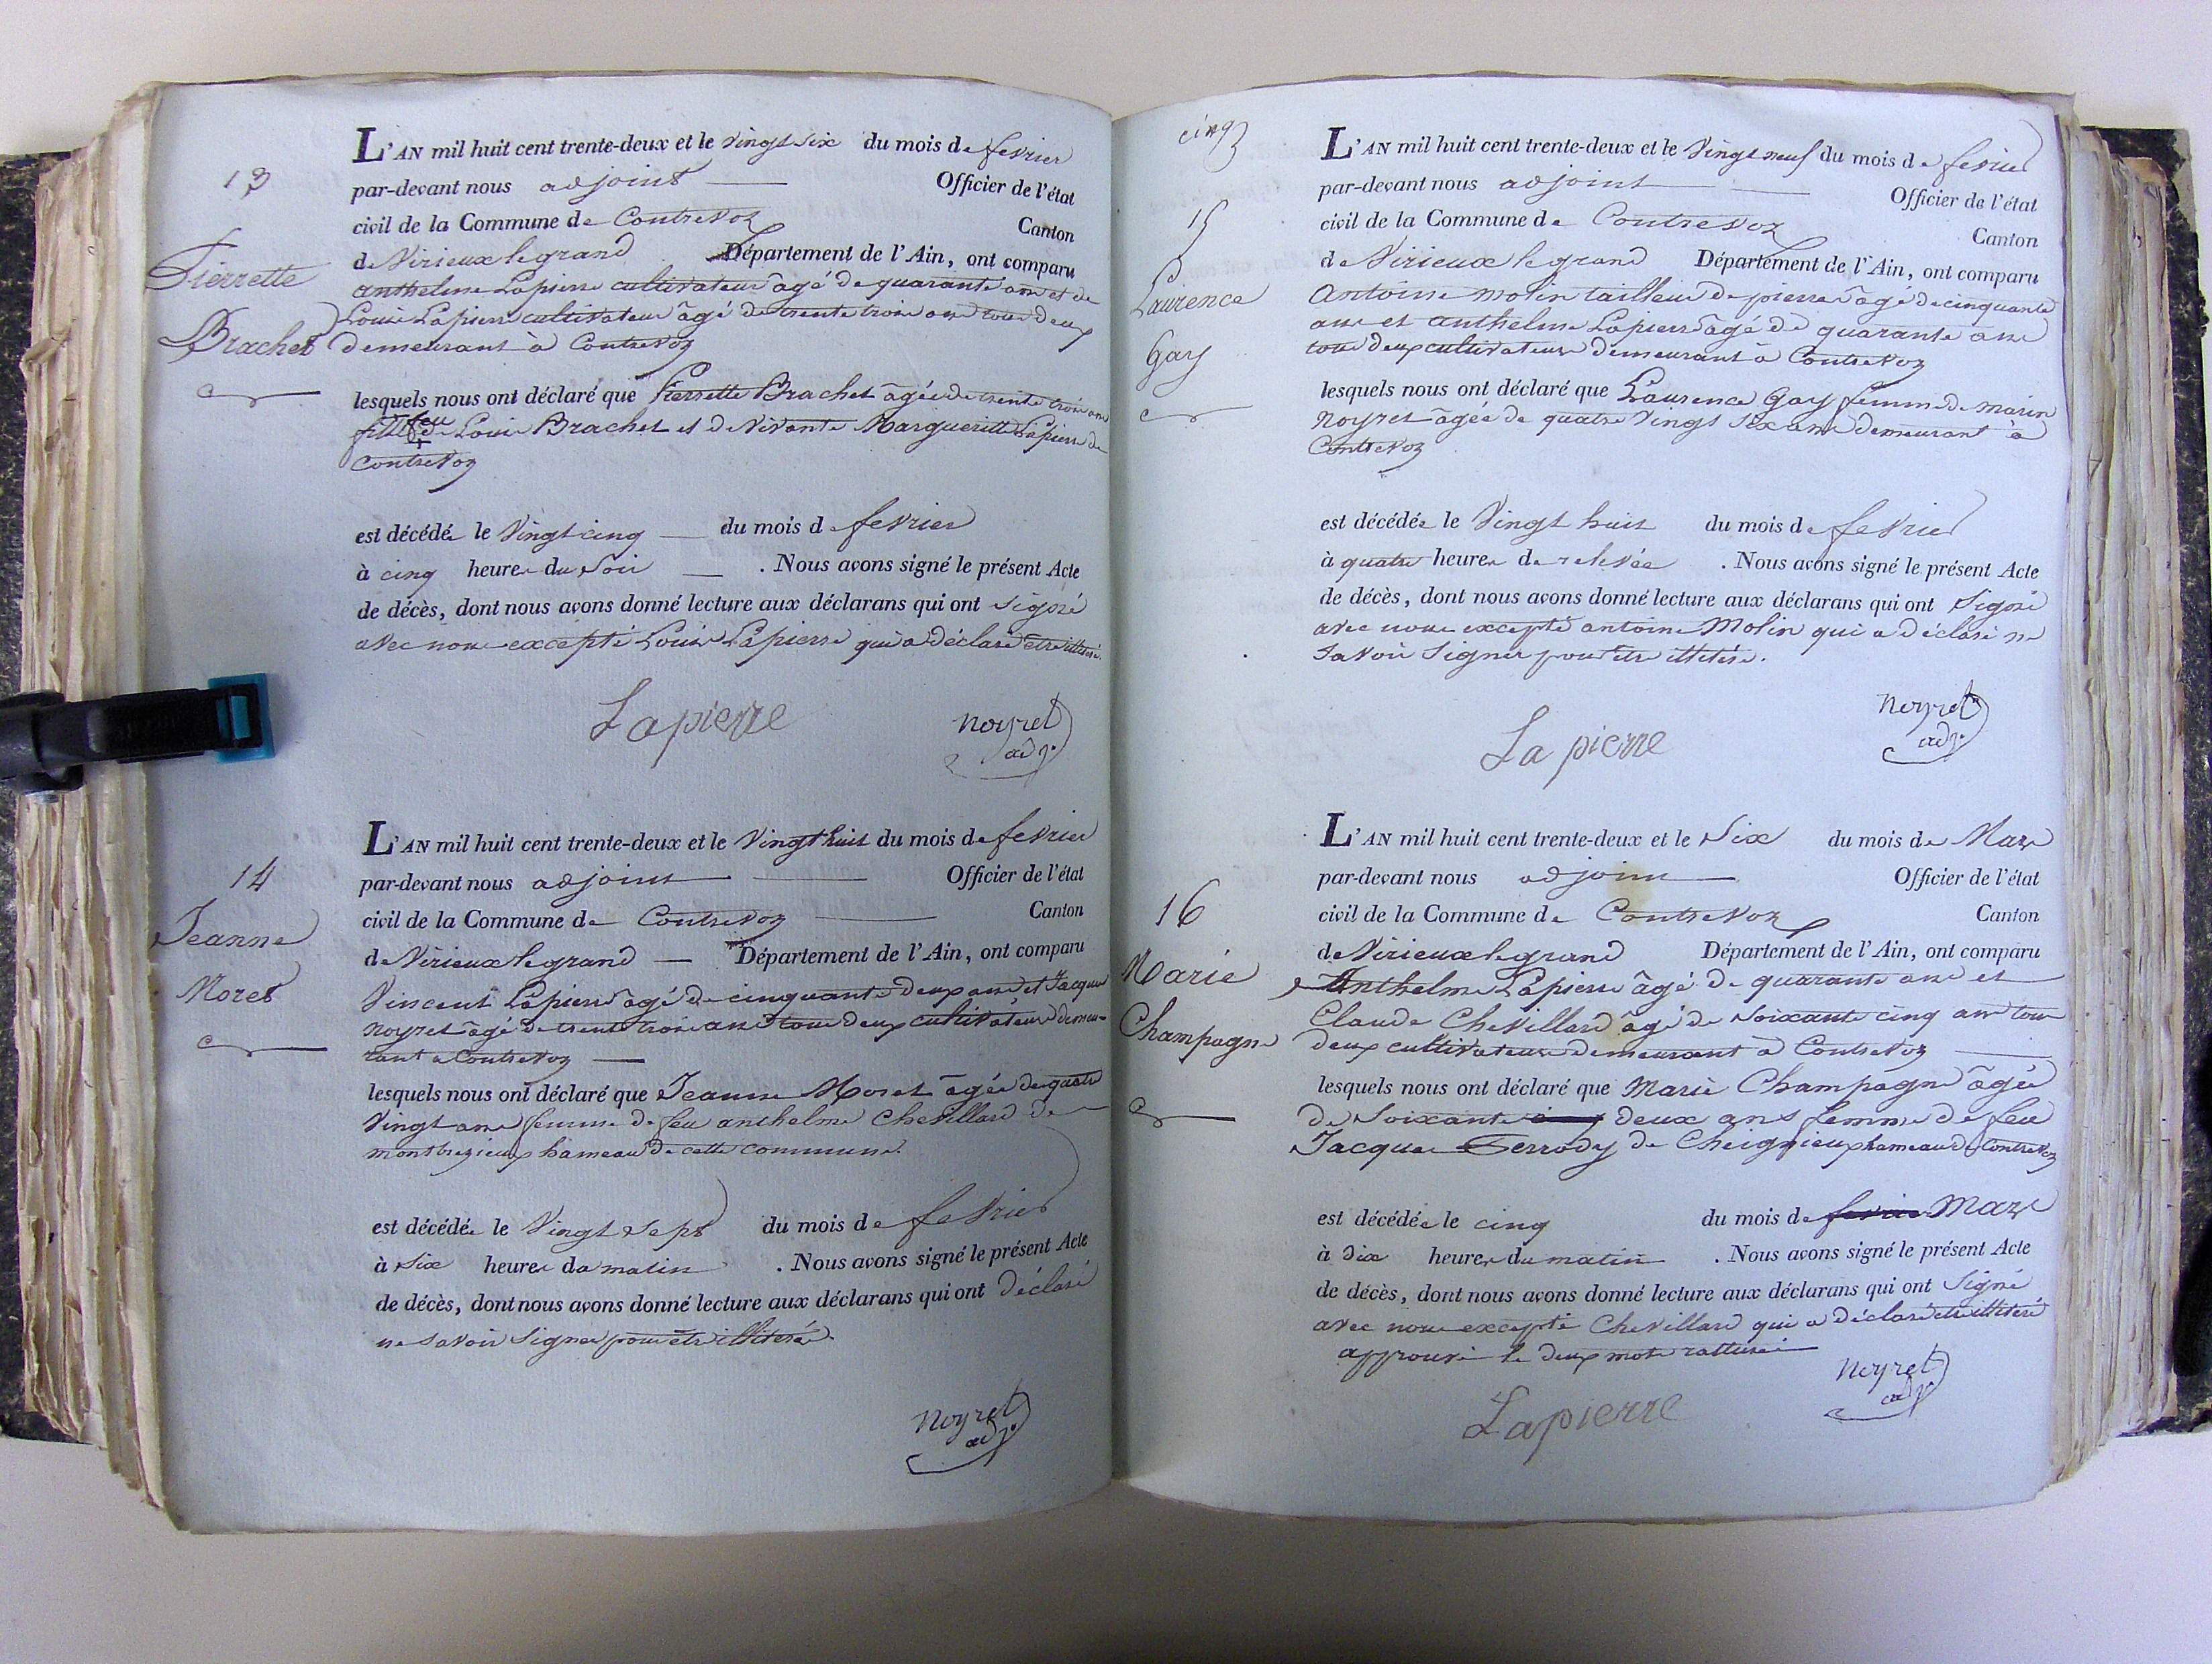 13
Pierrette
Brachet
L'AN mil huit cent trente-deux et le vingt six du mois de fevrier
par-devant nous adjoint Officier de l'état
civil de la Commune de Contrevoz Canton
de Virieux legrand Département de l'Ain, ont comparu
anthelme Lapierre cultivateur âgé de quarante ans et de
Louis Lapierre cultivateur âgé de trente trois ans tous deux
demeurant à Contrevoz
lesquels nous ont déclaré que Pierrette Brachet âgée de trente trois ans
fille de feu Louis Brachet et de vivante Margueritte Lapierre de
Contrevoz
est décédée le vingt cinq du mois de fevrier
à cinq heures du soir . Nous avons signé le présent Acte
de décès, dont nous avons donné lecture aux déclarans qui ont signé
avec nous excepté Louis Lapierre qui a déclaré etre illitéré.
Lapierre
Noyret
adj.
14
Jeanne
Moret
L'AN mil huit cent trente-deux et le vingt huit du mois de fevrier
par-devant nous adjoint Officier de l'état
civil de la Commune de Contrevoz Canton
de Virieux legrand Département de l'Ain, ont comparu
Vincent Lapierre âgé de cinquante deux ans et Jacque
noyret âgé de trente trois ans tous deux cultivateurs demeu-
rant a Contrevoz
lesquels nous ont déclaré que Jeanne Moret âgée de quatre
vingt ans femme de feu anthelme Chevillard de
montbrezieux hameau de cette commune.
est décédée le vingt sept du mois de fevrier
à six heures du matin . Nous avons signé le présent Acte
de décès, dont nous avons donné lecture aux déclarans qui ont déclaré
ne savoir signer pour être illitéré.
Noyret
adj.
cinq
15
Laurence
Gay
L'AN mil huit cent trente-deux et le vingt neuf du mois de fevrier
par-devant nous adjoint Officier de l'état
civil de la Commune de Contrevoz Canton
de Virieux legrand Département de l'Ain, ont comparu
Antoine molin tailleur de pierre âgé de cinquante
ans et anthelme Lapierre âgé de quarante ans
tous deux cultivateurs demeurant à Contrevoz
lesquels nous ont déclaré que Laurence Gay femme de marin
noyret âgée de quatre vingt six ans demeurant à
Contrevoz
est décédée le vingt huit du mois de fevrier
à quatre heures de relevée . Nous avons signé le présent Acte
de décès, dont nous avons donné lecture aux déclarans qui ont signé
avec nous excepté antoine Molin qui a déclaré ne
savoir signer pour être illitéré.
La pierre
Noyret
adj.
16
Marie
Champagne
L'AN mil huit cent trente-deux et le six du mois de Mars
par-devant nous adjoint Officier de l'état
civil de la Commune de Contrevoz Canton
de Virieux legrand Département de l'Ain, ont comparu
Anthelme Lapierre âgé de quarante ans et
Claude Chevillard âgé de soixante cinq ans tous
deux cultivateurs demeurant à Contrevoz
lesquels nous ont déclaré que Marie Champagne âgée
de soixante deux ans femme de feu
Jacque Serrody de Cheignieux hameau de Contrevoz
est décédée le cinq du mois de fevrier Mars
à dix heures du matin . Nous avons signé le présent Acte
de décès, dont nous avons donné lecture aux déclarans qui ont signé
avec nous excepté Chevillard qui a déclaré etre illitéré
approuvé le deux mots ratturé
Noyret
adj.
Lapierre